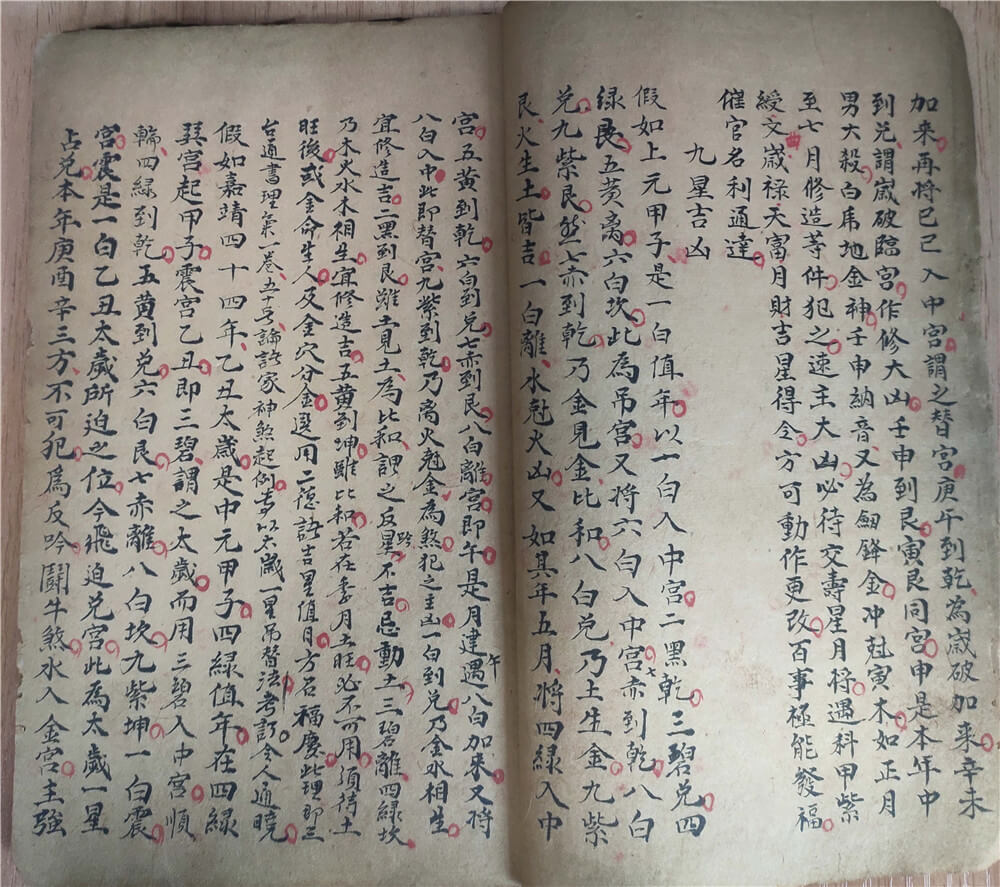 加来再将己巳入中宫謂之替宫庚午到乾為歲破加来辛未
到兑謂歲破臨宫作修大凶壬申到艮寅艮同宫申是本年中
男大殺白虎地金神壬申納音又為劒鋒金冲尅寅木如正月
至七月修造等件犯之速主大凶必待交壽星月将遇科甲紫
綬文曲歲禄天富月財吉星得令方可動作更改百事極能發福
催官名利通達
九星吉凶
假如上元甲子是一白值年以一白入中宫二黑乾三碧兑四
绿艮五黄离六白坎此為吊宫又将六白入中宫七赤到乾八白
兑九紫艮然七赤到乾乃金見金比和八白兑乃土生金九紫
艮火生土皆吉一白離水尅火凶又如其年五月将四緑入中
宫五黄到乾六白到兑七赤到艮八白離宫即午是月建遇八白加来又将
八白入中此即替宫九紫到乾乃离火尅金為煞犯之主凶一白到兑乃金水相生
宜修造吉二黑到艮雖土見土為比和謂之反吟星不吉忌動土三碧離四緑坎
乃木火水木相生宜修造吉五黄到坤雖比和若在季月土旺必不可用須待土
旺後或金命生人及金穴分金選用二德諸吉星值月方召福慶此理即三
台通書理氣一卷五十号論諸家神煞起例多以太歲一星吊替法考訂令人通曉
假如嘉靖四十四年乙丑太歲是中元甲子四緑值年在四緑
巽宫起甲子震宫乙丑即三碧謂之太歲而用三碧入中宫順
輪四緑到乾五黄到兑六白艮七赤離八白坎九紫坤一白震
宫震是一白乙丑太歲所迫之位今飛迫兑宫此為太歲一星
占兑本年庚酉辛三方不可犯為反吟闘牛煞水入金宫主強